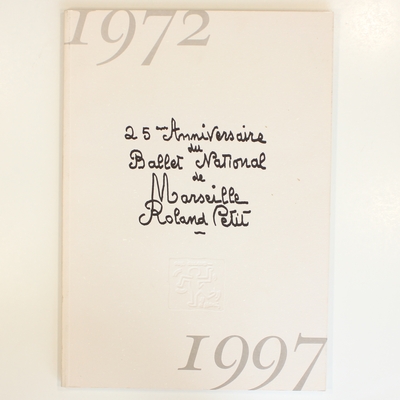 1972
25ème Anniversaire
du
Ballet National
de
Marseille
Roland Petit
1997